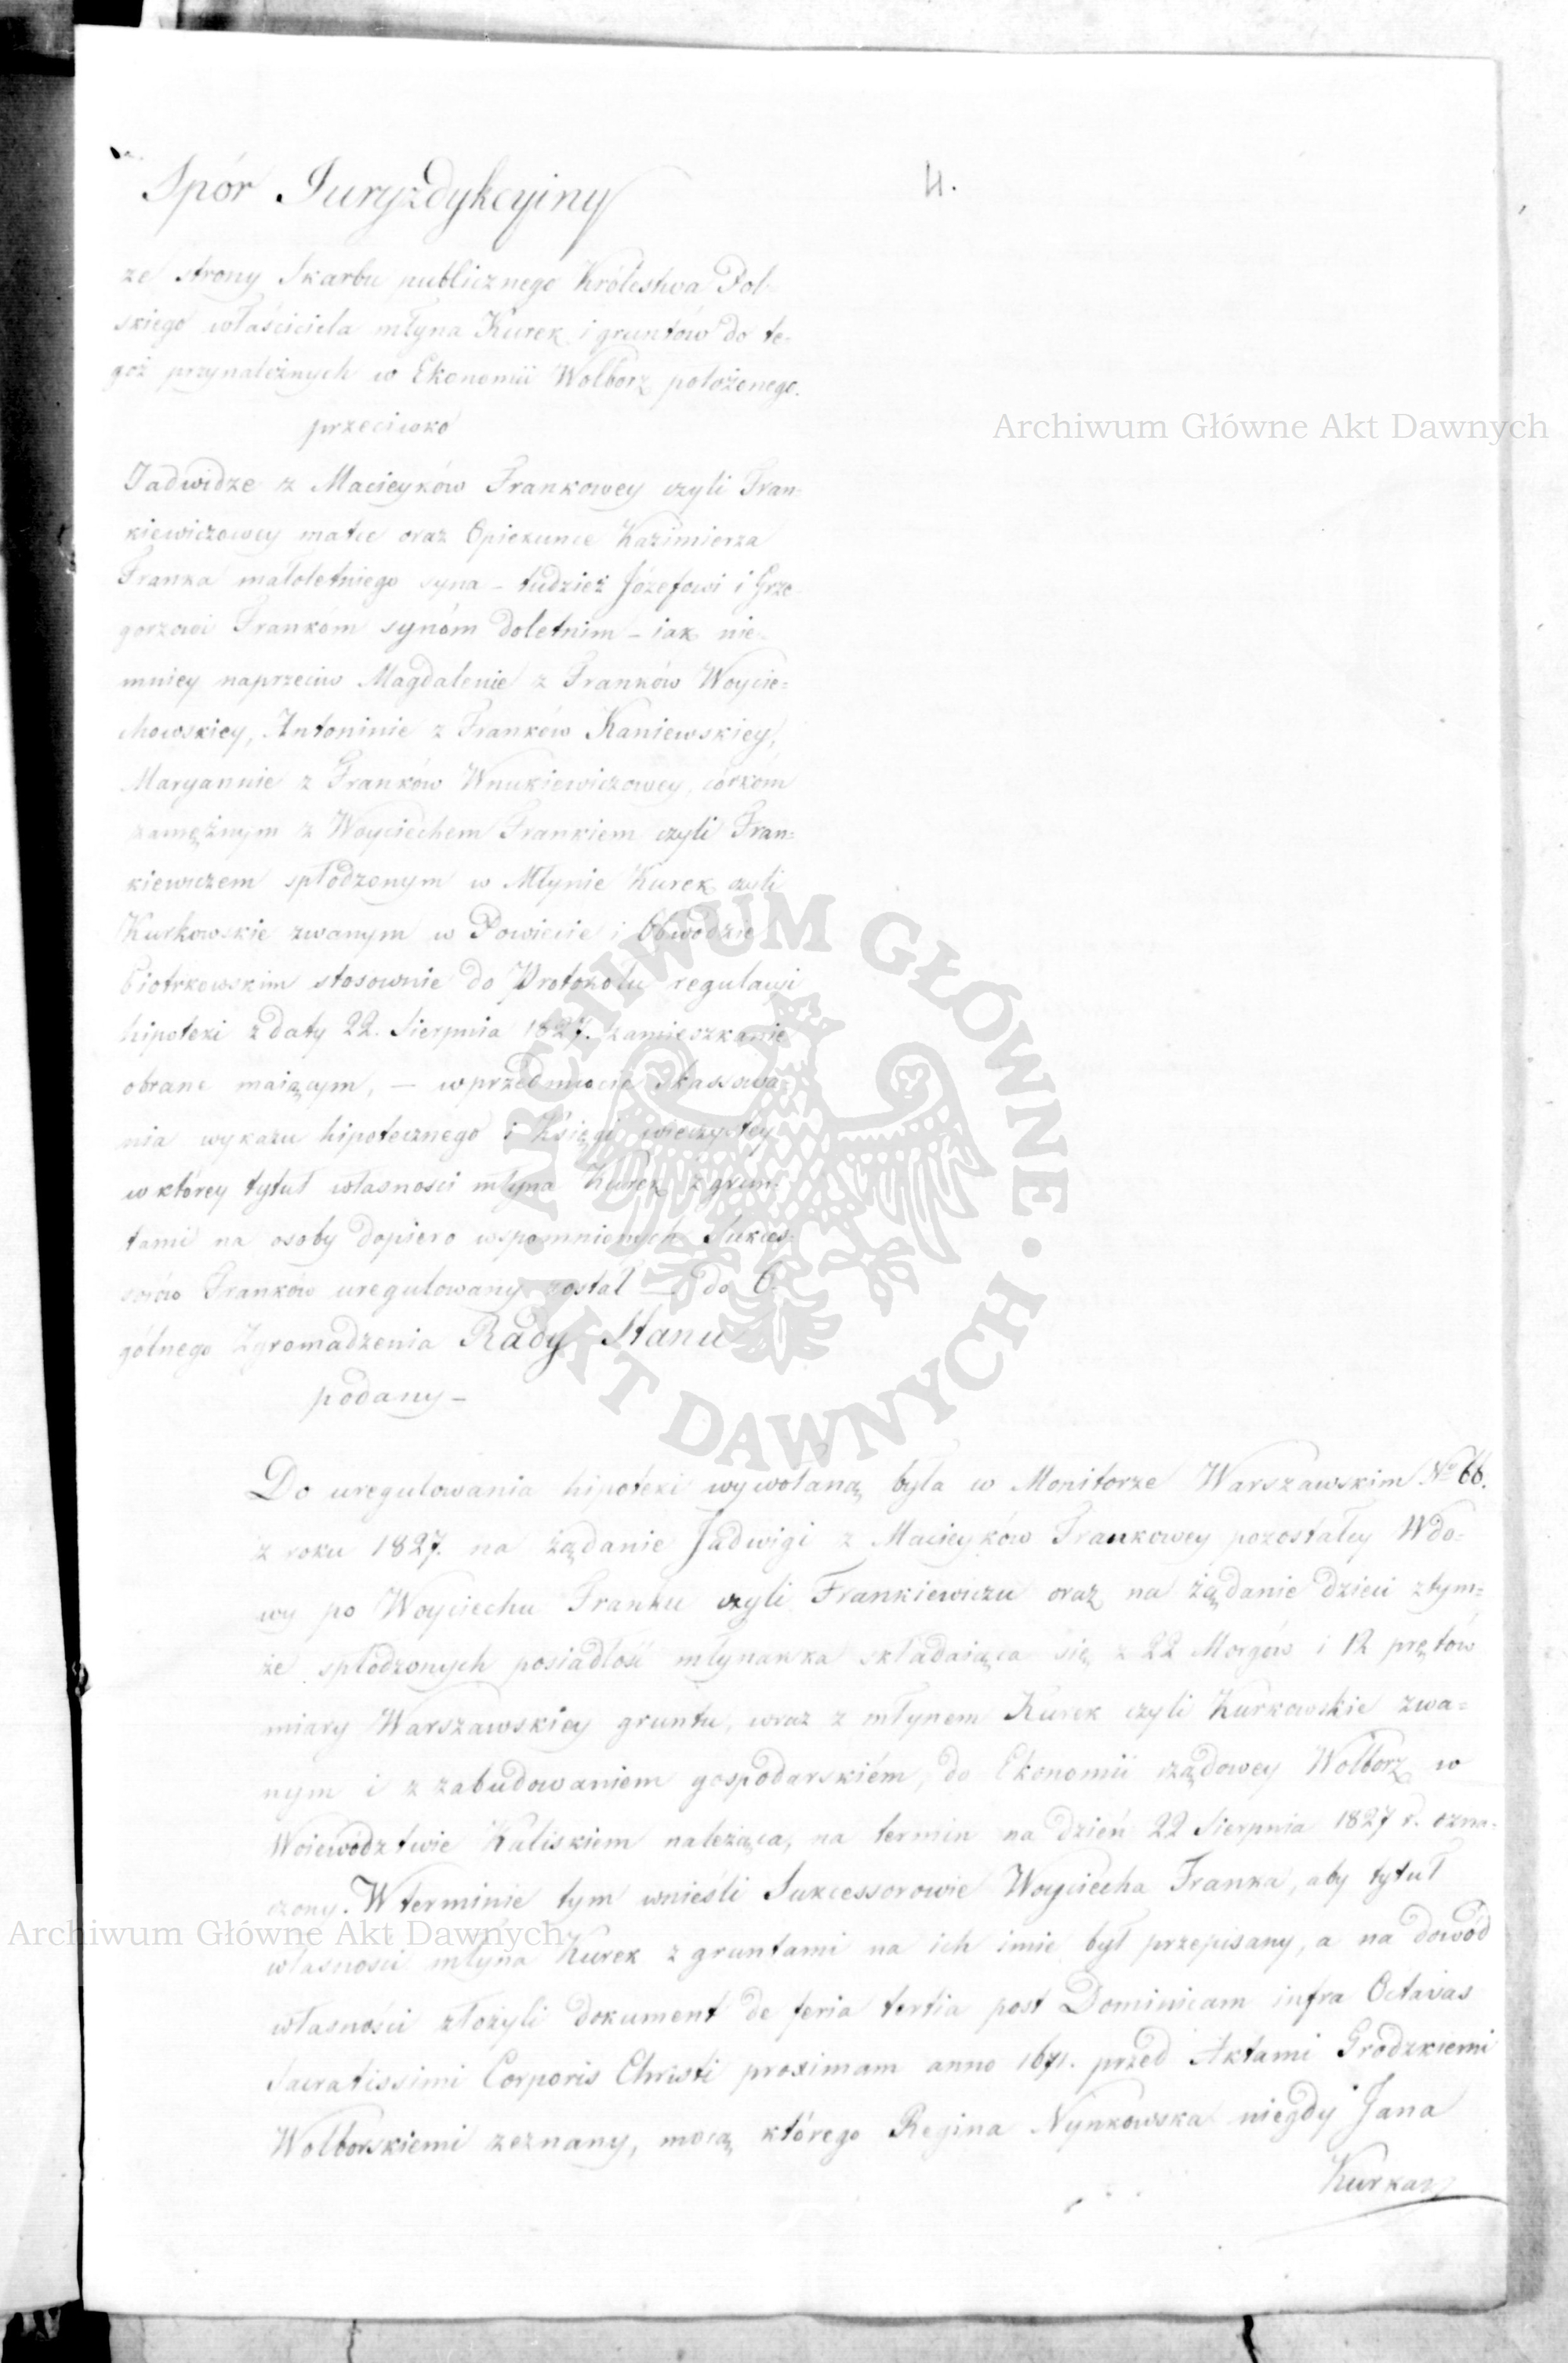 4.
Spór Juryzdykcyiny
ze strony Skarbu publicznego Królestwa Pol-
skiego właściciela młyna Kurek i gruntów do te-
goż przynależnych w Ekonomii Wolborz położonego.
przeciwko
Jadwidze z Macieyków Frankowey czyli Fran=
kiewiczowey matce oraz Opiekunce Kazimierza
Franka małoletniego syna – tudzież Józefowi i Grze-
gorzowi Frankóm synóm doletnim – iak nie-
mniey naprzeciw Magdalenie z Franków Woycie=
chowskiey, Antoninie z Franków Kaniewskiey,
Maryannie z Franków Wnukiewiczowey, córkóm
zamężnym z Woyciechem Frankiem czyli Fran=
kiewiczem spłodzonym w Młynie Kurek czyli
Kurkowskie zwanym w Powiecie i Obwodzie
Piotrkowskim stosownie do Protokołu regulacyi
hipoteki z daty 22. Sierpnia 1827. zamieszkanie
obrane maiącym, – w przedmiocie skassowa-
nia wykazu hipotecznego i Księgi wieczystey
w którey tytuł własności młyna Kurek z grun-
tami na osoby dopiero wspomnionych Sukces-
sorów Franków uregulowany został – do O-
gólnego Zgromadzenia Rady Stanu
podany –
Do uregulowania hipoteki wywołaną była w Monitorze Warszawskim No 66.
z roku 1827. na żądanie Jadwigi z Macieyków Frankowey pozostałey Wdo=
wy po Woyciechu Franku czyli Frankiewiczu oraz na żądanie dzieci z tym=
że spłodzonych posiadłość młynarska składaiąca się z 22 Morgów i 12 prętów
miary Warszawskiey gruntu, wraz z młynem Kurek czyli Kurkowskie zwa=
nym i z zabudowaniem gospodarskiém, do Ekonomii rządowey Wolborz w
Woiewództwie Kaliskiem należąca, na termin na dzień 22 Sierpnia 1827 r. ozna-
czony. W terminie tym wnieśli Sukcessorowie Woyciecha Franka, aby tytuł
własności młyna Kurek z gruntami na ich imie był przepisany, a na dowód
własności złożyli dokument de feria tertia post Dominicam infra Octavas
Sacratissimi Corporis Christi proximam anno 1671. przed Aktami Grodzkiemi
Wolborskiemi zeznany, mocą którego Regina Nynkowska niegdy Jana
Kurka
Archiwum Główne Akt Dawnych
ARCHIWUM GŁÓWNE
AKT DAWNYCH
Archiwum Główne Akt Dawnych